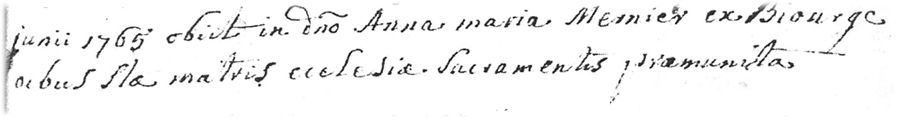 junii 1765 obiit in dno Anna maria Memier ex Biourge
oibus stae matris ecclesiae Sacramentis praemunita